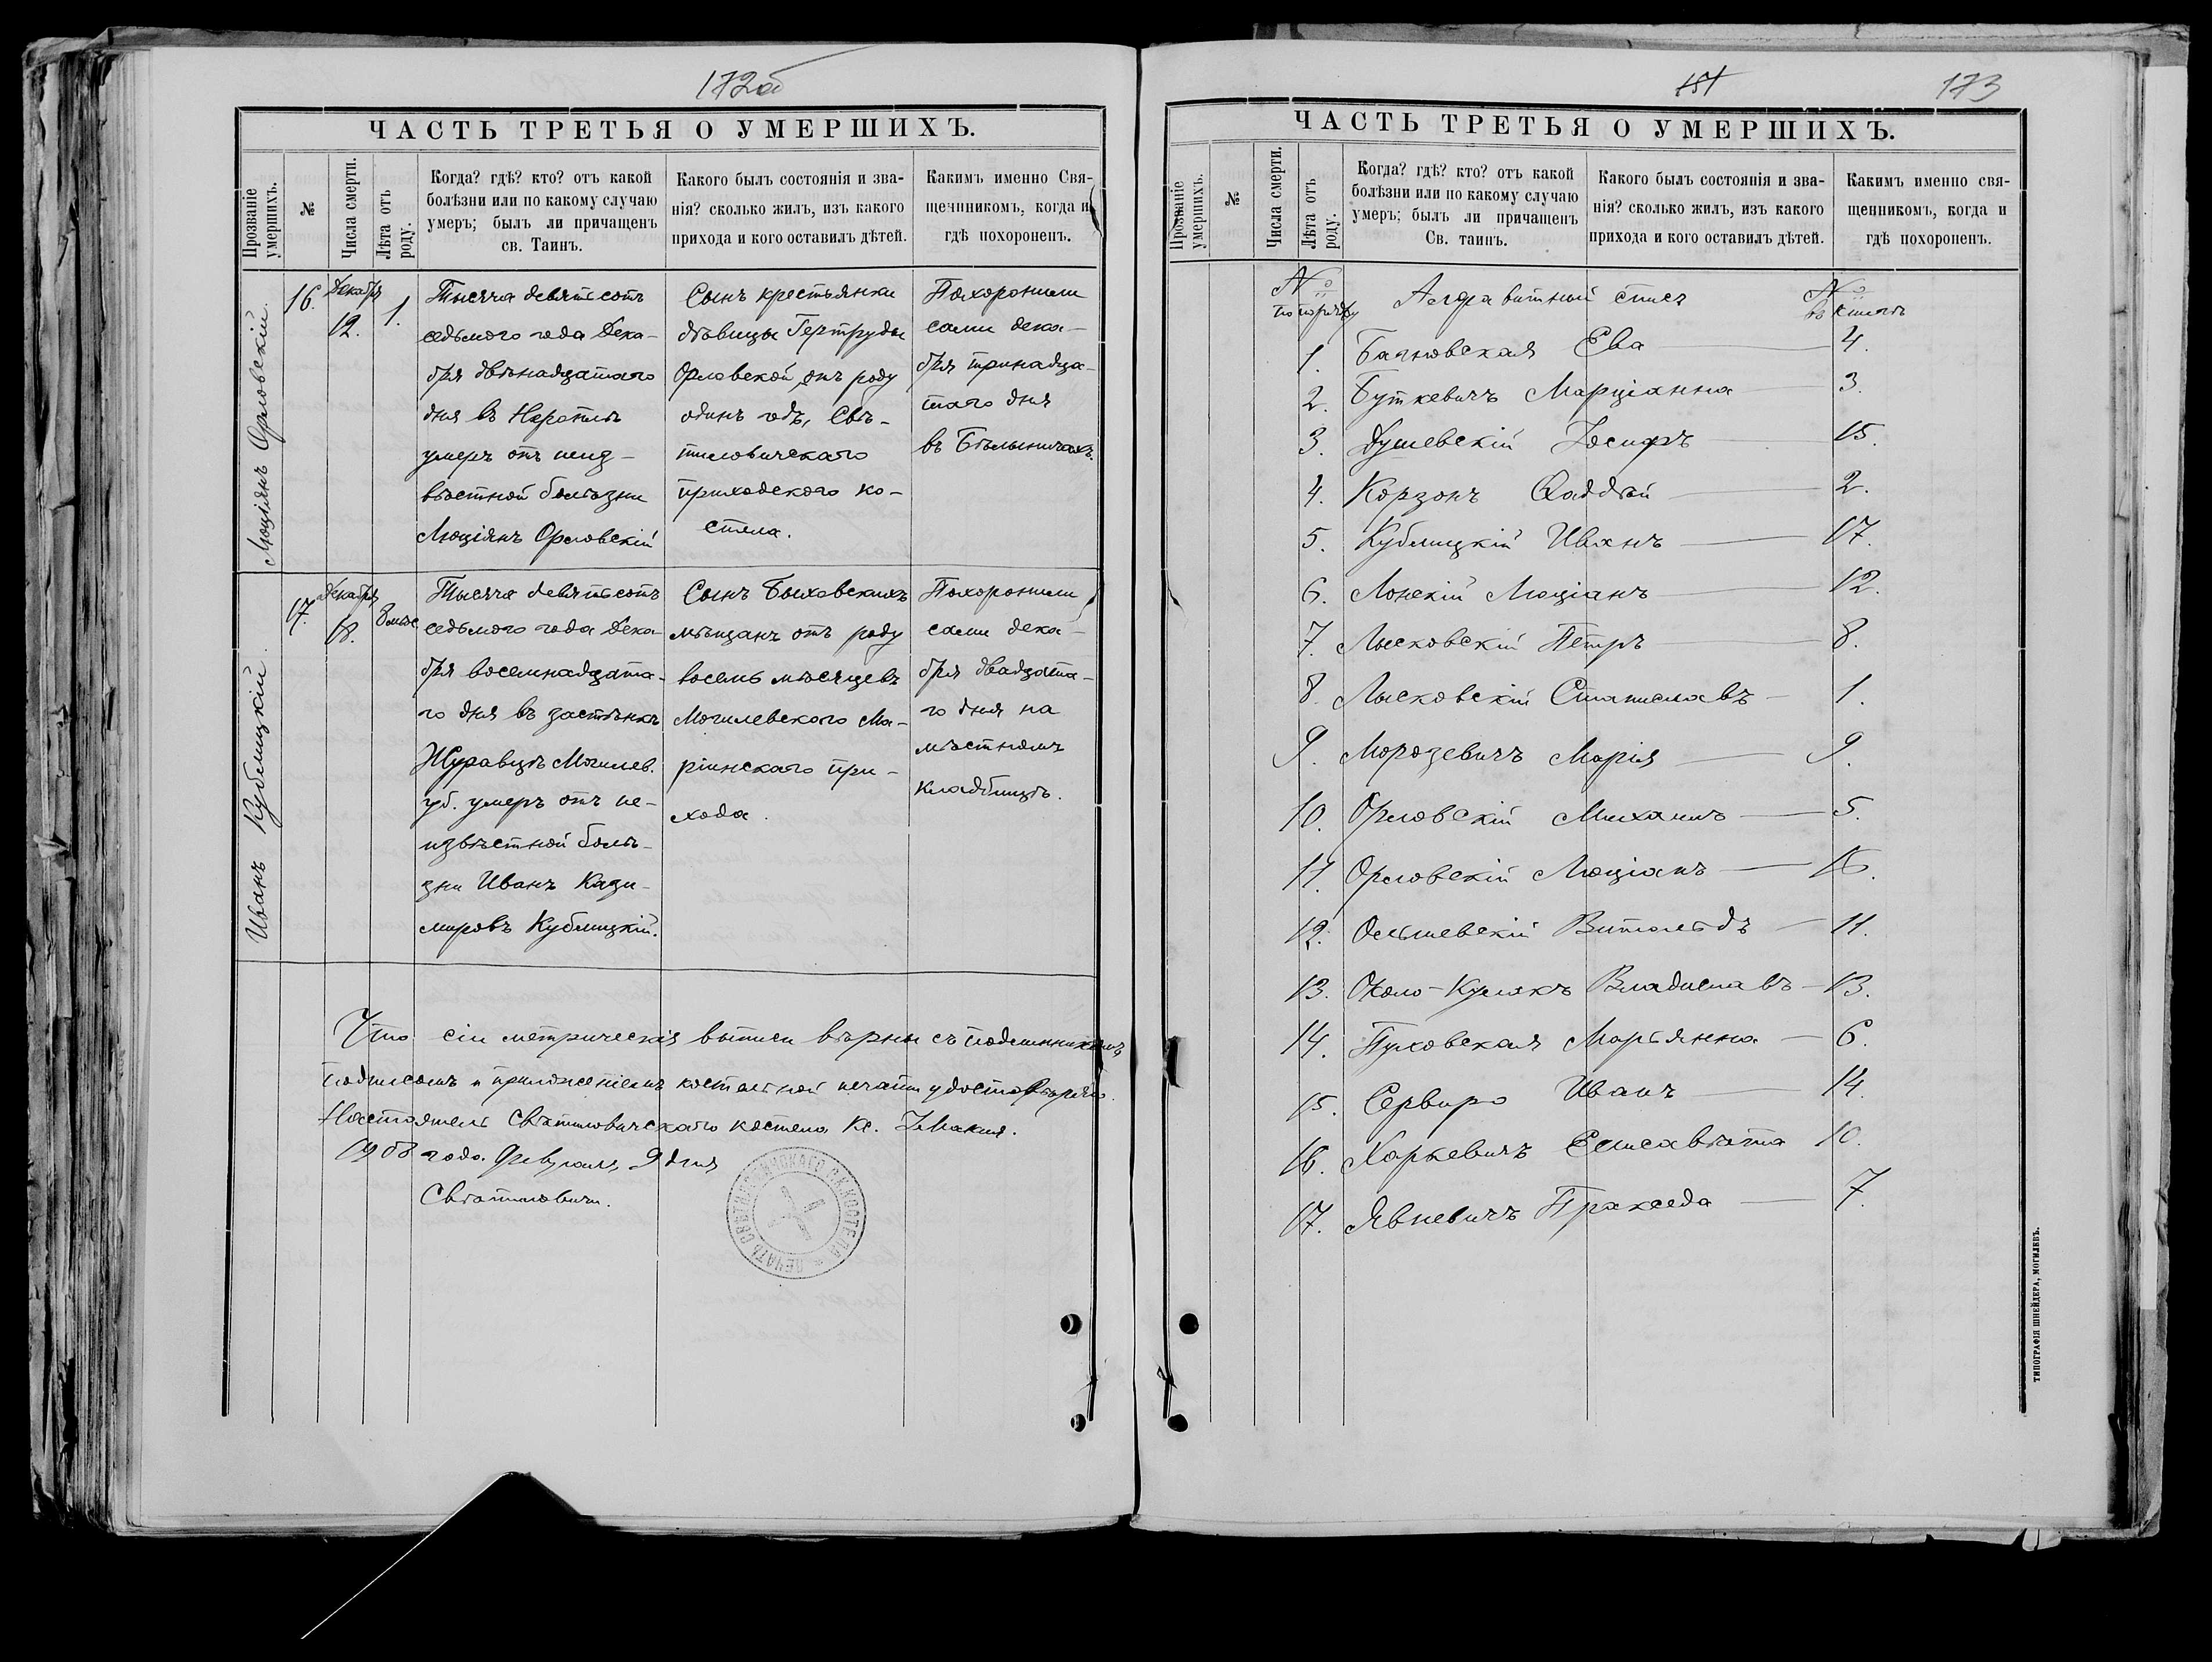 172об
ЧАСТЬ ТРЕТЬЯ О УМЕРШИХЪ.
Прозваніе умершихъ.
№
Числа смерти.
Лѣта отъ роду.
Когда? гдѣ? кто? отъ какой
болѣзни или по какому случаю
умеръ; былъ ли причащенъ
св. Таинъ.
Какого былъ состоянія и зва-
нія? сколько жилъ, изъ какого
прихода и кого оставилъ дѣтей.
Какимъ именно Свя-
щенникомъ, когда и
гдѣ похороненъ.
Люціянъ Орловскій.
16.
Декабр
12.
1.
Тысяча девятьсотъ
седьмого года Дека-
бря двѣнадцатаго
дня въ
умеръ отъ неиз-
вѣстной болѣзни
Люціянъ Орловскій
Сынъ крестьянки
дѣвицы Гертруды
Орловской, отъ роду
одинъ годъ, Свѣ-
тиловичскаго
приходского ко-
стела.
Похоронили
сами дека-
бря тринадца-
таго дня
въ Бѣлыничахъ.
Иванъ Кублицкій.
17.
Декабря
18.
8 мѣс
Тысяча девятьсотъ
седьмого года Дека-
бря восемнадцата-
го дня въ застѣнкѣ
Журавцѣ Могилев.
губ. умеръ отъ не-
извѣстной болѣ-
зни Иванъ Кази-
мировъ Кублицкій.
Сынъ Быховскихъ
мѣщанъ отъ роду
восемь мѣсяцевъ
Могилевского Ма-
ріинскаго при-
хода.
Похоронили
сами дека-
бря двадцата-
го дня на
мѣстномъ
кладбищѣ.
Что сіи метрическія выписи вѣрны съ подлинникомъ
подписомъ и приложеніемъ костельной печати удостовѣряю.
Настоятель Свѣтиловичскаго костела Кс.
1908 года. Февраля 9 дня
Свѣтиловичи.
ПЕЧАТЬ СВѢТИЛОВИЧСКАГО Р.К. КОСТЕЛА
173
ЧАСТЬ ТРЕТЬЯ О УМЕРШИХЪ.
Прозваніе умершихъ.
№
Числа смерти.
Лѣта отъ роду.
Когда? гдѣ? кто? отъ какой
болѣзни или по какому случаю
умеръ; былъ ли причащенъ
Св. таинъ.
Какого былъ состоянія и зва-
нія? сколько жилъ, изъ какого
прихода и кого оставилъ дѣтей.
Какимъ именно свя-
щенникомъ, когда и
гдѣ похороненъ.
№ по порядку Алфавитный списъ № въ книгѣ
1. Ева 4.
2. Буткевичъ Марціанна 3.
3. Душевскій Іосифъ 15.
4. Корзонъ Ѳаддѣй 2.
5. Кублицкій Иванъ 17.
6. Лонскій Люціанъ 12.
7. Лысковскій Петръ 8.
8. Лысковскій Станиславъ 1.
9. Морозевичъ Марія 9.
10. Орловскій Михаилъ 5.
11. Орловскій Люціанъ 16.
12. Ольшевскій Витольдъ 11.
13. Около-Кулакъ Владиславъ 13.
14. Пуховская Марьянна 6.
15. Сервиро Иванъ 14.
16. Харкевичъ Елисавѣта 10.
17. Явневичъ Пракседа 7.
ТИПОГРАФІЯ ШНЕЙДЕРА, МОГИЛЕВЪ.